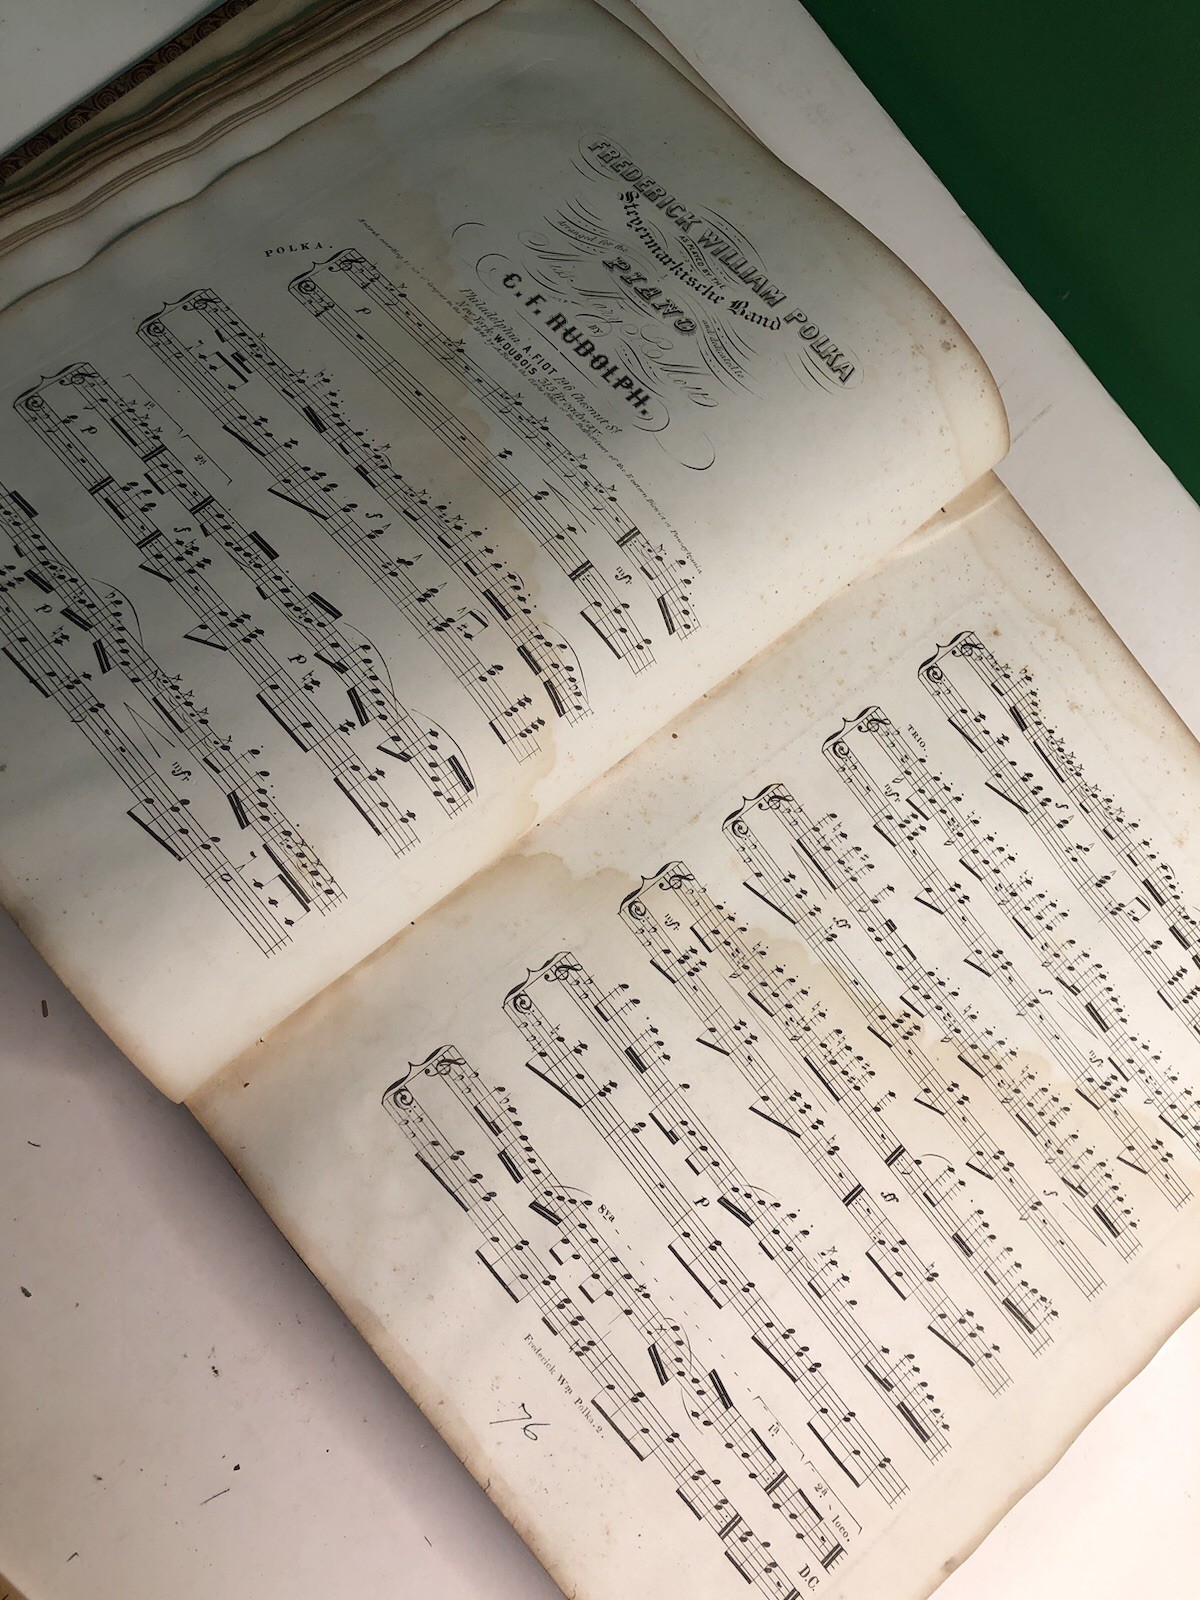 FREDERICK WILLIAM POLKA
AS PLAYED BY THE
Steyermarkische Band
Arranged for the
PIANO
and dedicated to
Miss Mary B. Mott
BY
C. F. RUDOLPH.
Philadelphia A. FIOT 196 Chesnut St
New York W. DUBOIS 315 Broadway.
POLKA.
p
mfr
f
1ª
2ª
p
f
p
p
mfr
f
TRIO.
mfr
f
mfr
f
ff
mfr
ff
p
8va
1ª
2ª
loco.
D.C.
Frederick Wm Polka. 2.
76